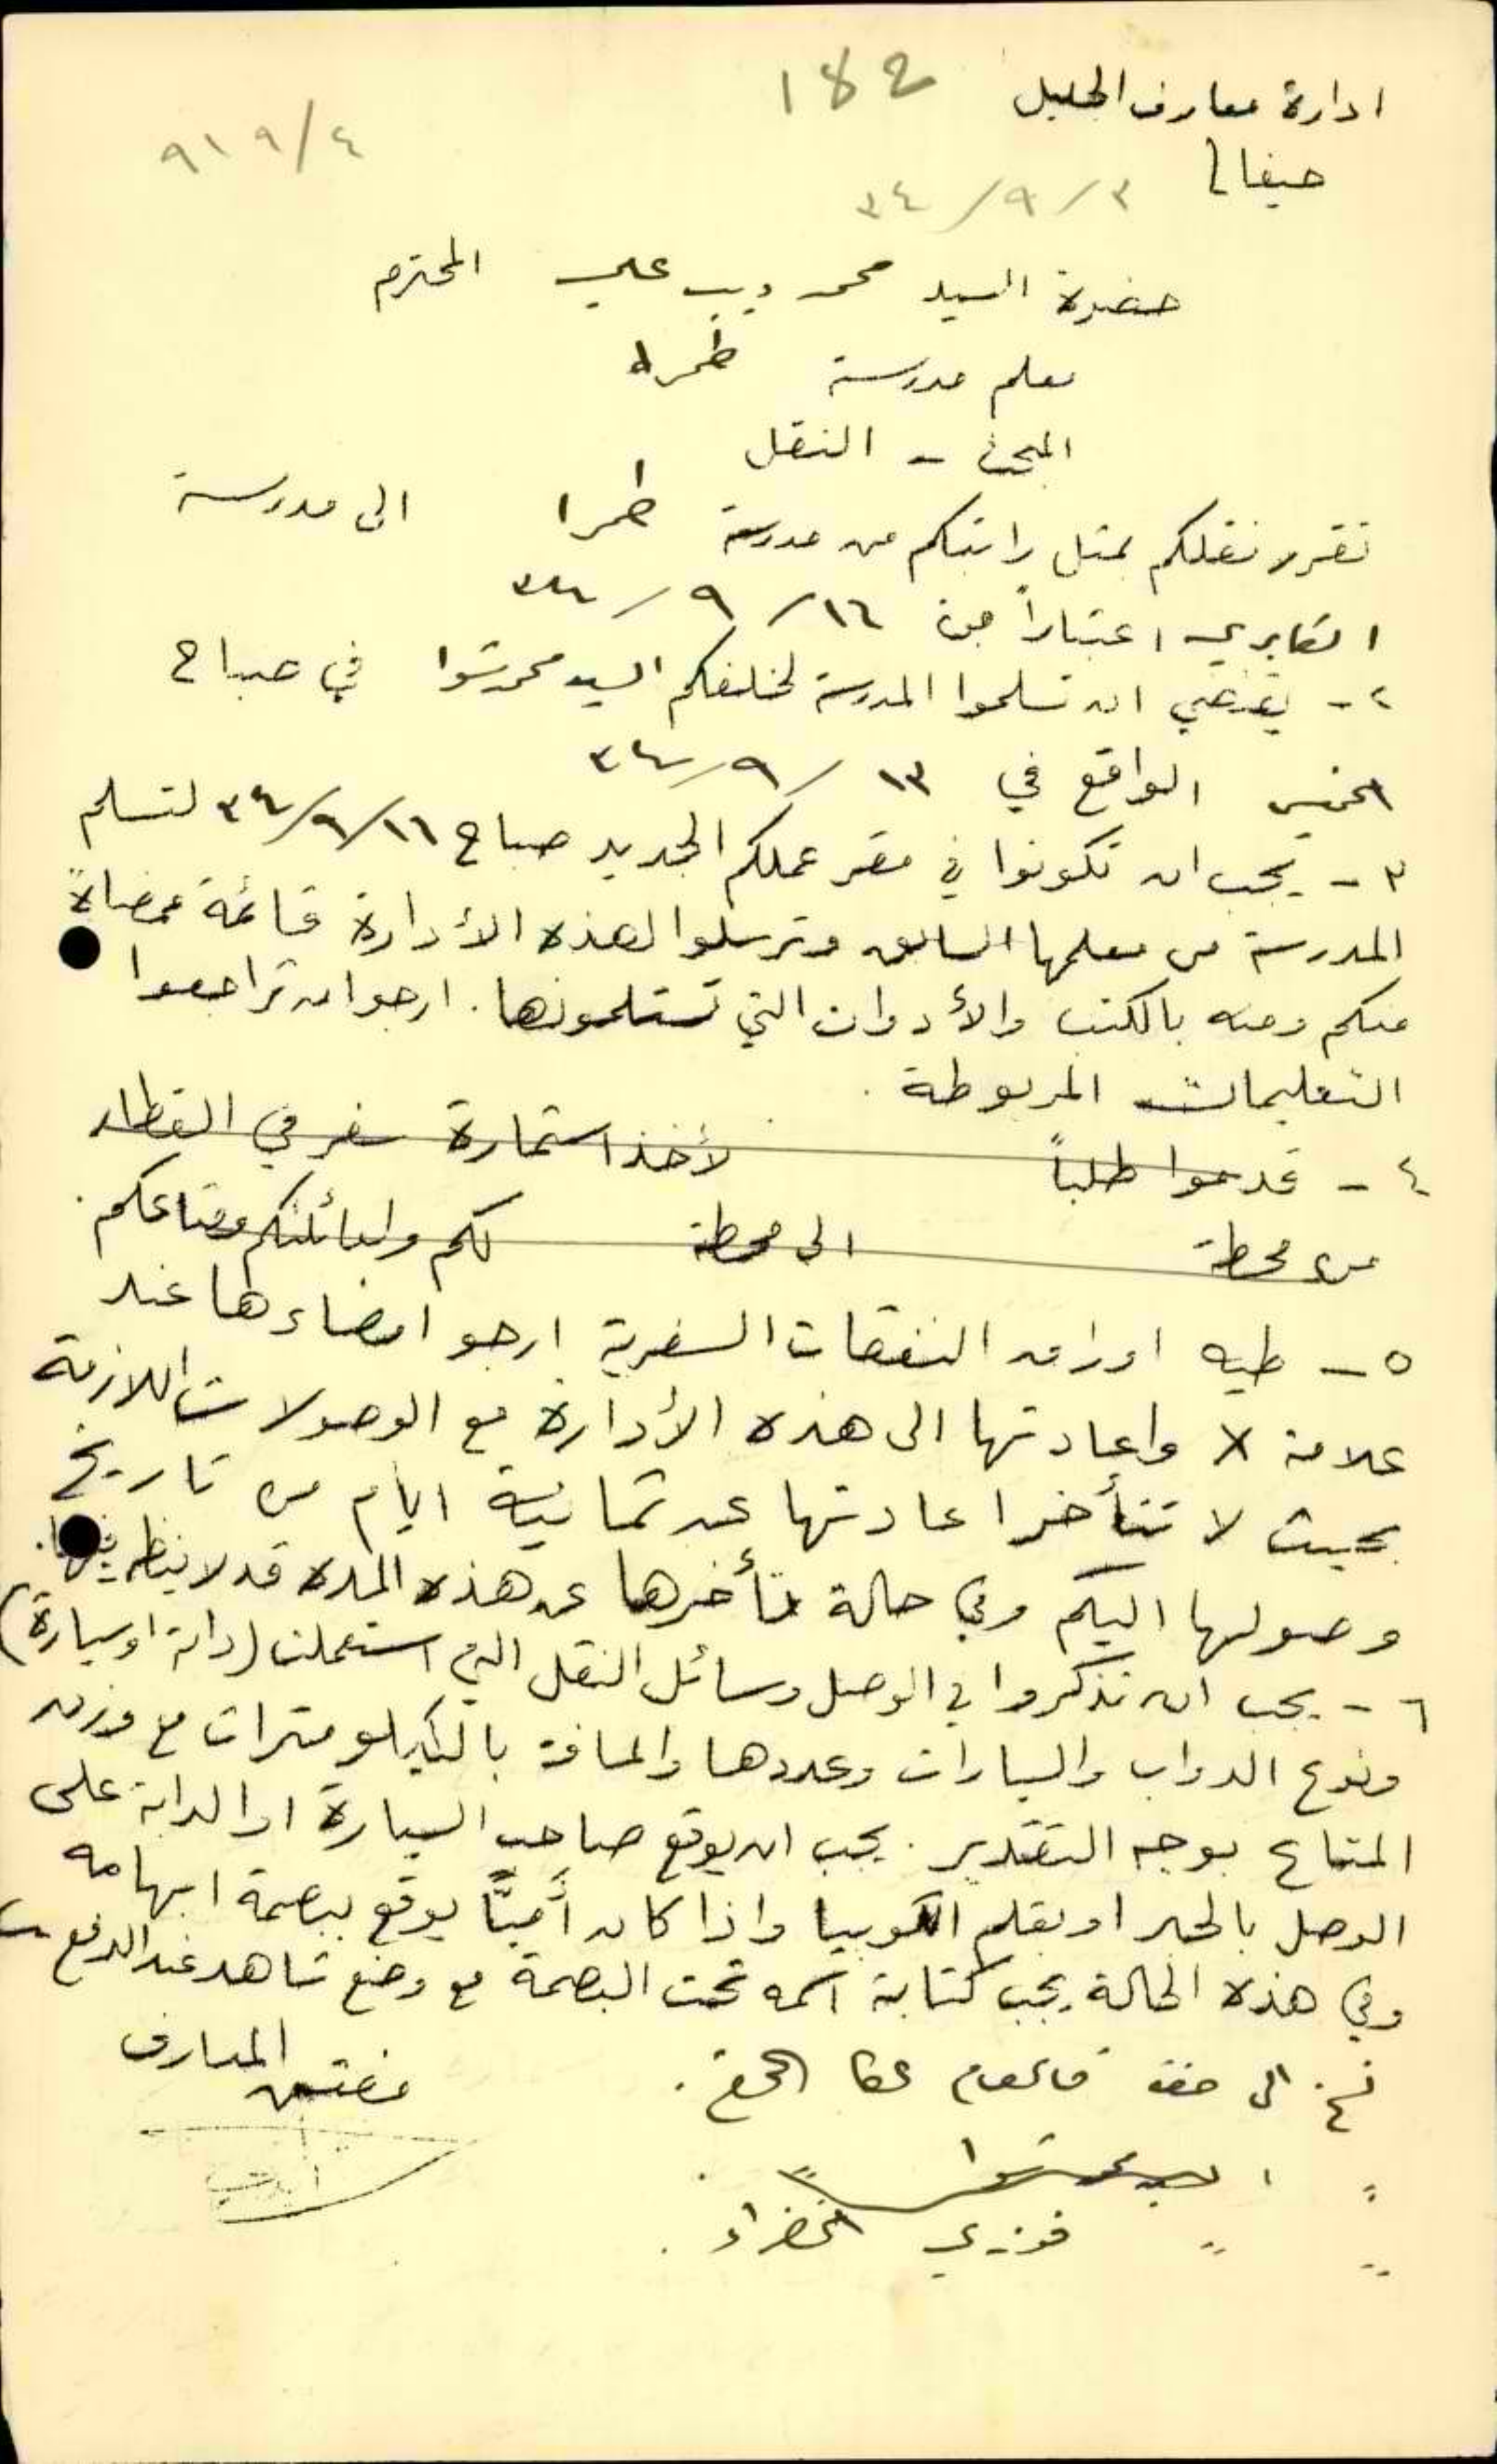 ادارة معارف الجليل 182
٩١٩/٤
حيفا ٣/٩/٣٤
حضرة السيد محمد ديب علي المحترم
معلم مدرسة طمره
المبحث - النقل
تقرر نقلكم بمثل راتبكم من مدرسة طمرا الى مدرسة
الكابري اعتباراً من ١٦/٩/٣٤
٢- يقتضي ان تسلموا المدرسة لخلفكم السيد محمد شوا في صباح
الخميس الواقع في ١٣/٩/٣٤
٣- يجب ان تكونوا في مقر عملكم الجديد صباح ١٦/٩/٣٤ لتسلم
المدرسة من معلمها السابق وترسلوا لهذه الأدارة قائمة ممضاةً
منكم ومنه بالكتب والأدوات التي تستلمونها. ارجو ان تراجعوا
التعليمات المربوطة.
٤- قدموا طلباً لأخذ استمارة سفر في القطار
من محطة الى محطة لكم ولعائلتكم ومتاعكم.
٥- طيه اوراق النفقات السفرية ارجو امضاءها عند
علامة X واعادتها الى هذه الأدارة مع الوصولات اللازمة
بحيث لا تتأخر اعادتها عن ثمانية ايام من تاريخ
وصولها اليكم وفي حالة تأخرها عن هذه المده قد لا ينظر فيها.
٦- يجب ان تذكروا في الوصل وسائل النقل التي استعملت (دابة او سيارة)
ونوع الدواب والسيارات وعددها والمسافة بالكيلومترات مع وزن
المتاع بوجه التقدير. يجب ان يوقع صاحب السيارة او الدابة على
الوصل بالحبر او بقلم الكوبيا واذا كان أميّاً يوقع ببصمة ابهامه
وفي هذه الحالة يجب كتابة اسمه تحت البصمة مع وضع شاهد عند الدفع
مفتش المعارف
نسخ الى حضرة قائمقام عكا المحترم.
" السيد محمد شوا "
" " فوزي الخضراء.